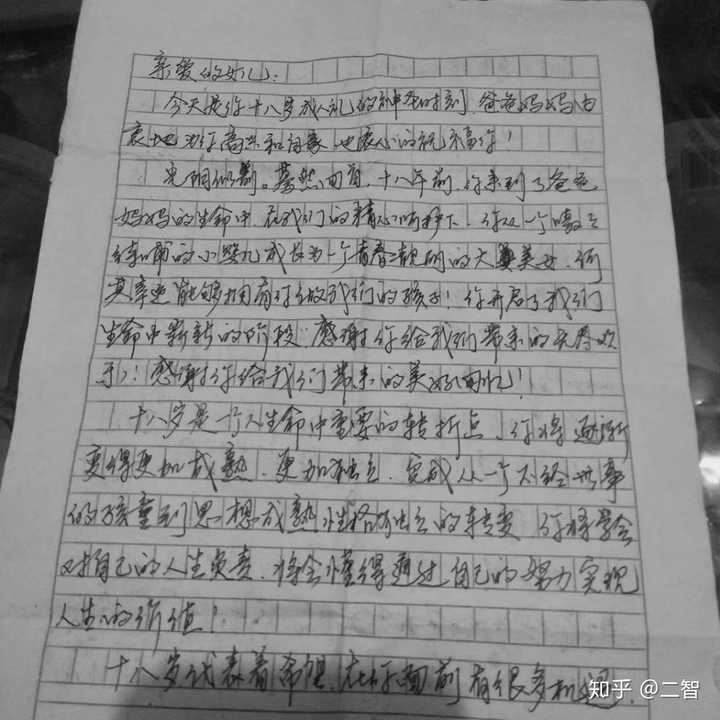 亲爱的女儿：
今天是你十八岁成人礼的神圣时刻，爸爸妈妈由
衷地为你高兴和自豪，也衷心的祝福你！
光阴似箭。蓦然回首，十八年前，你来到了爸爸
妈妈的生命中，在我们的精心呵护下，你从一个嗷嗷
待哺的小婴儿成长为一个青春靓丽的大美女，何
其幸运能够拥有你做我们的孩子！你开启了我们
生命中崭新的阶段，感谢你给我们带来的无尽欢
乐！感谢你给我们带来的美好回忆！
十八岁是一个人生命中重要的转折点，你将逐渐
变得更加成熟，更加独立，完成从一个不经世事
的孩童到思想成熟性格独立的转变，你将学会
对自己的人生负责，将会懂得通过自己的努力实现
人生的价值！
十八岁代表着希望，在你面前有很多机遇，
知乎 @二智